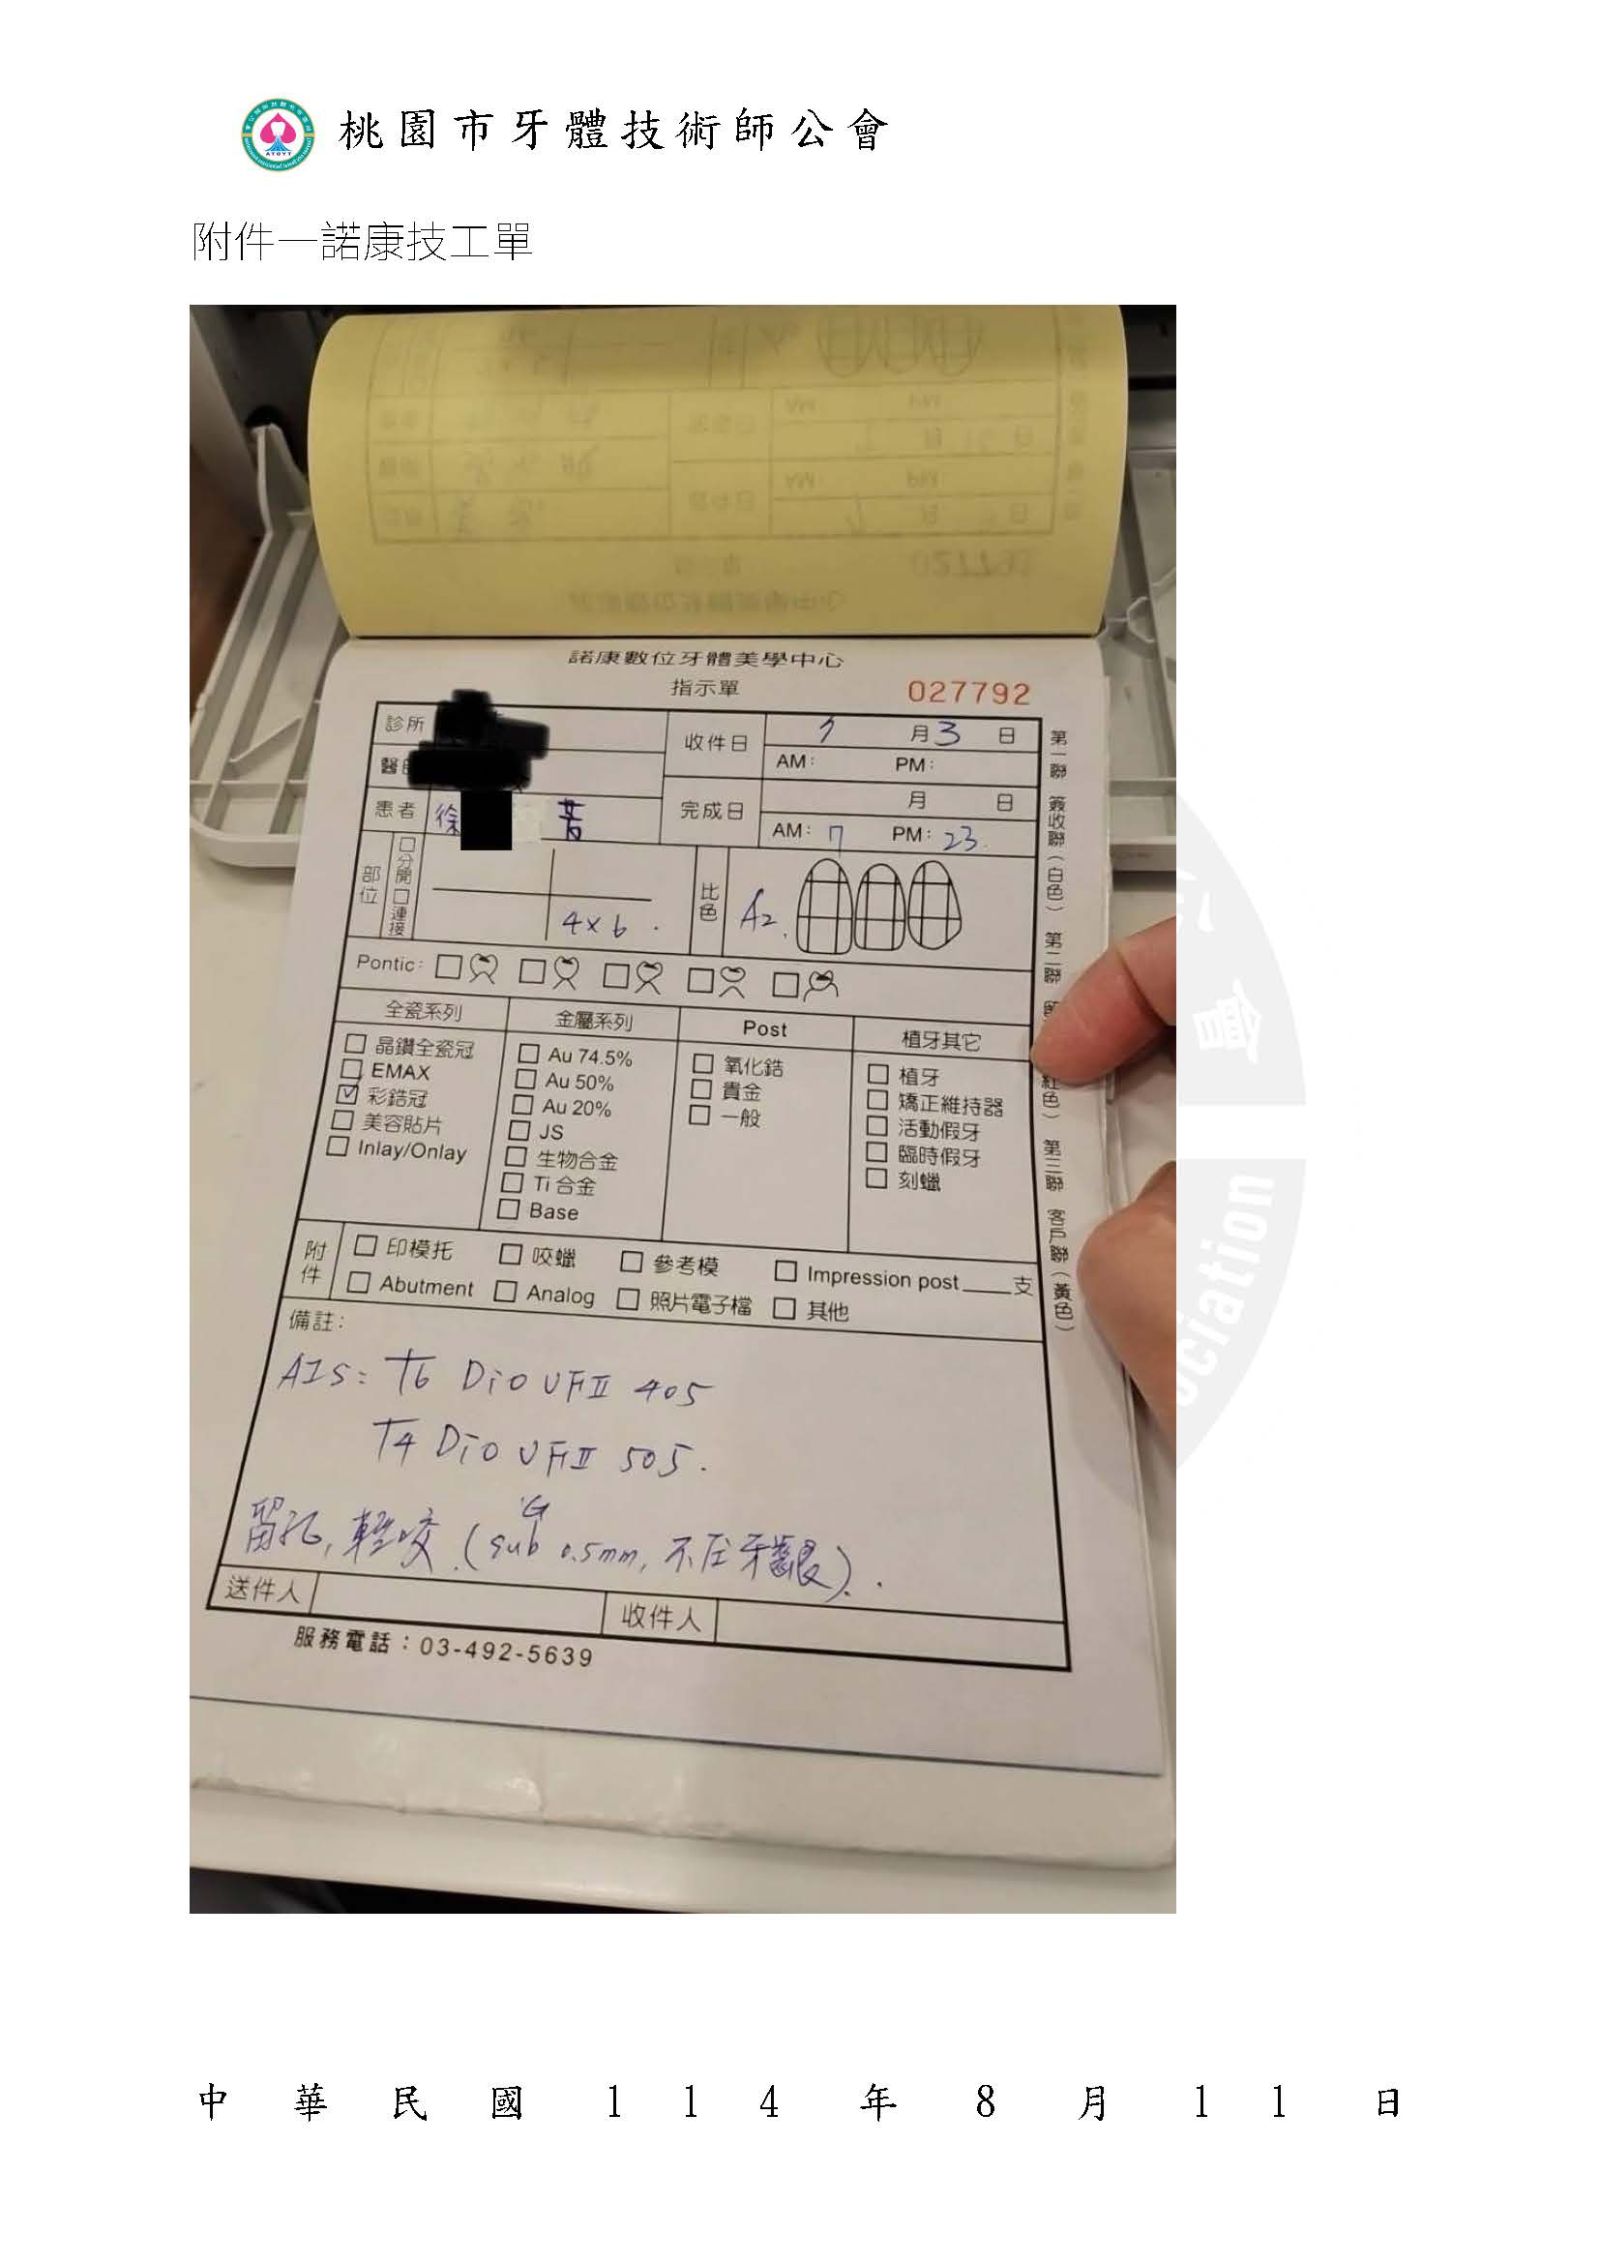 桃園市牙體技術師公會
附件一諾康技工單
諾康數位牙體美學中心
指示單
027792
診所
收件日 7月3日
AM: PM:
醫
患者 徐 若
完成日 月 日
AM: 7 PM: 23.
部位 分開 連接
4×6.
比色 A2.
Pontic:
全瓷系列
晶鑽全瓷冠
EMAX
彩鋯冠
美容貼片
Inlay/Onlay
金屬系列
Au 74.5%
Au 50%
Au 20%
JS
生物合金
Ti 合金
Base
Post
氧化鋯
貴金
一般
植牙其它
植牙
矯正維持器
活動假牙
臨時假牙
刻蠟
附件
印模托 咬蠟 參考模 Impression post 支
Abutment Analog 照片電子檔 其他
備註:
AIS: 6 Dio UFII 405
4 Dio UFII 505.
留孔, 輕咬.(sub G 0.5mm, 不压牙齦).
送件人
收件人
服務電話:03-492-5639
第一聯 簽收聯(白色) 第二聯 紅色) 第三聯 客戶聯(黃色)
會
ociation
中華民國114年8月11日